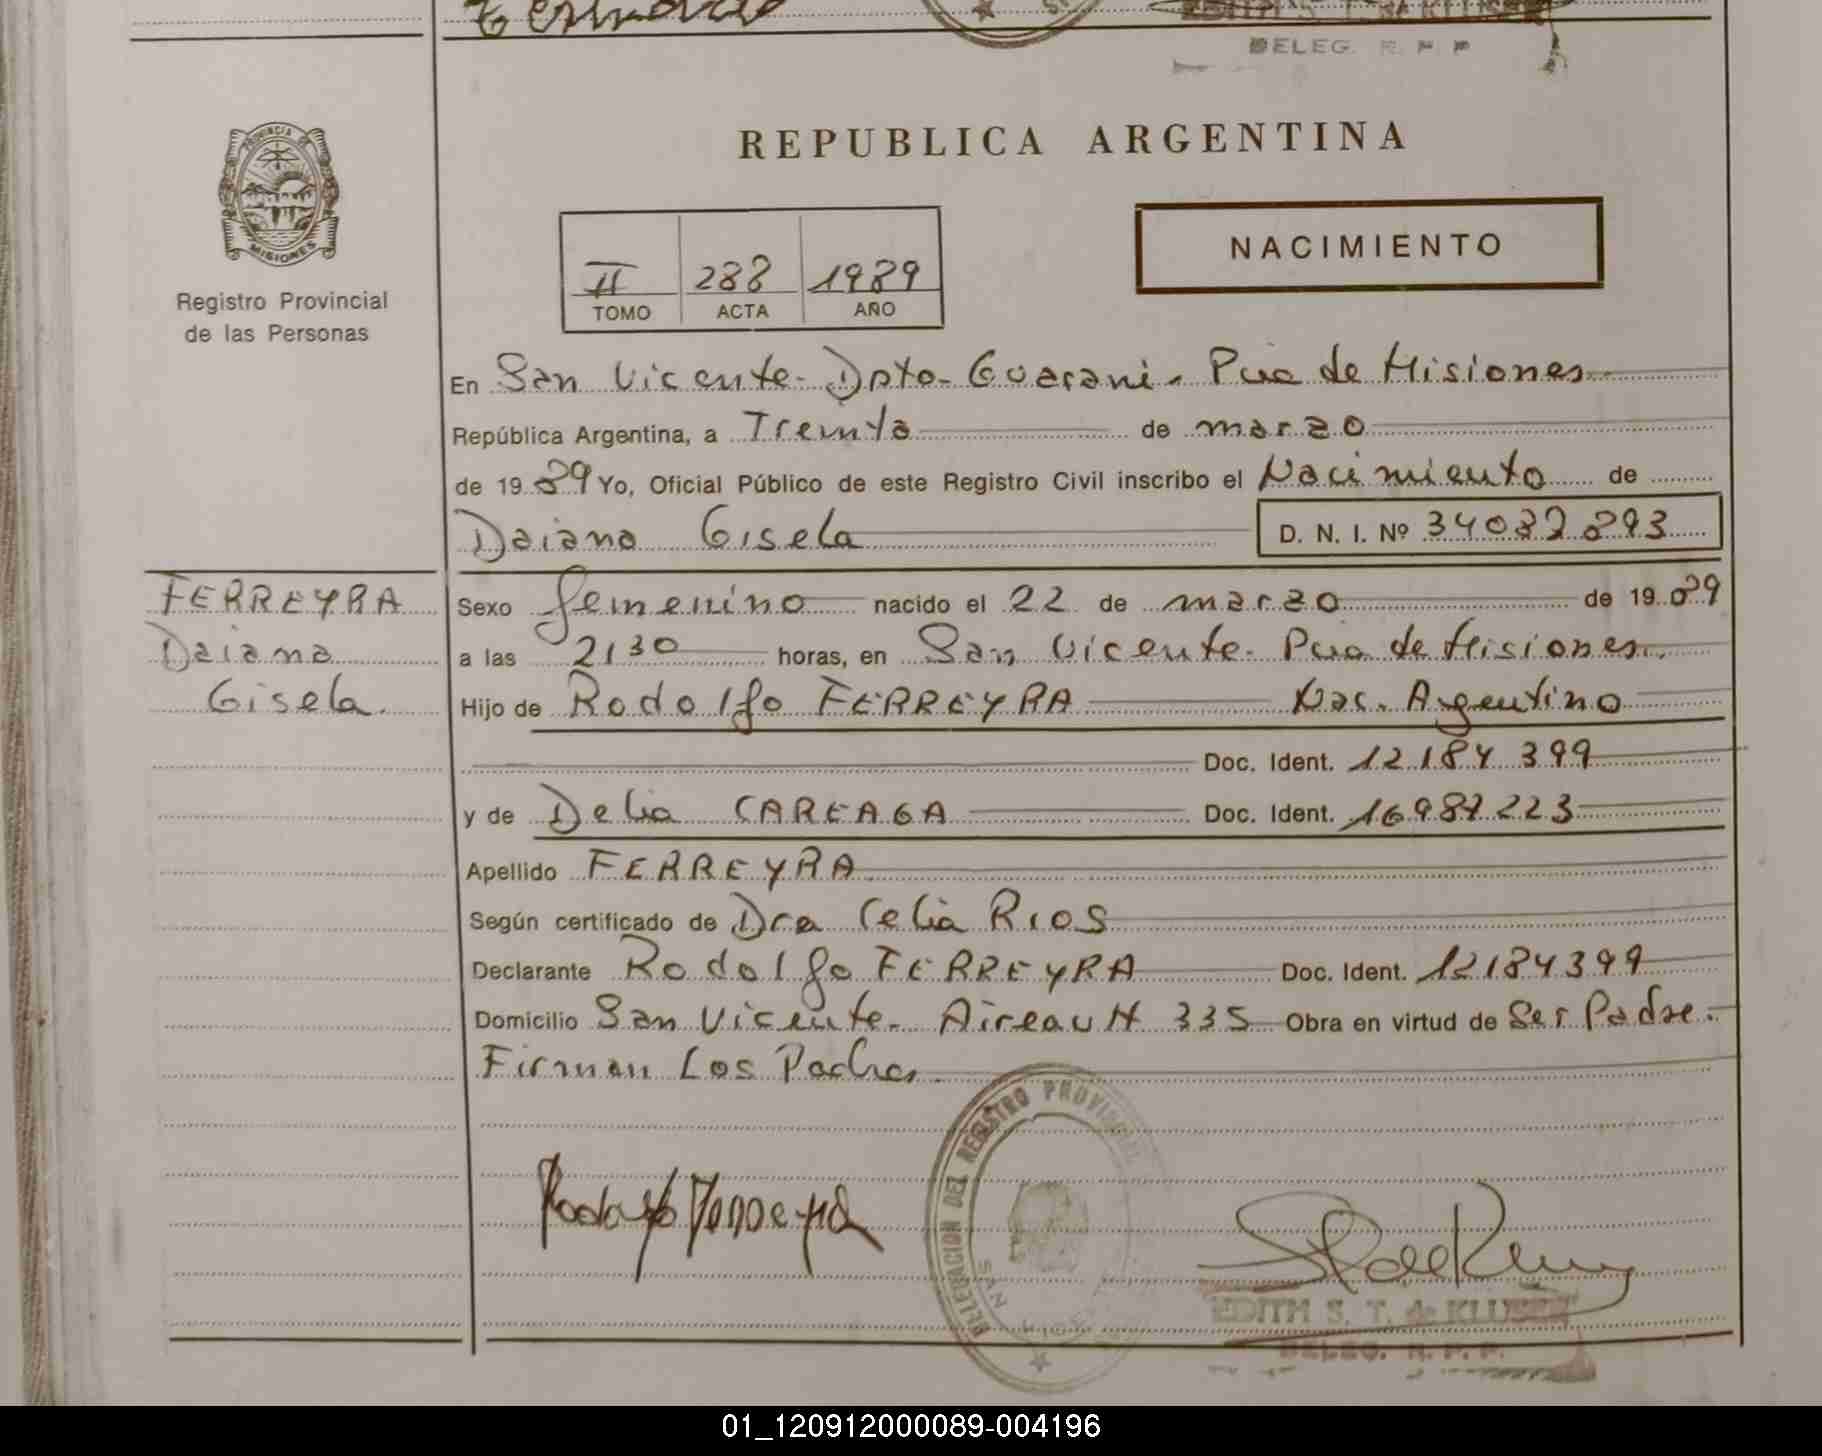 EDITH S. T. de KLUSEN
DELEG. R. P. P.
PROVINCIA DE
MISIONES
Registro Provincial
de las Personas
REPUBLICA ARGENTINA
NACIMIENTO
II 288 1989
TOMO ACTA AÑO
En San Vicente - Dpto - Guarani - Pcia de Misiones
República Argentina, a Treinta de marzo
de 19 89 Yo, Oficial Público de este Registro Civil inscribo el Nacimiento de
Daiana Gisela D. N. I. Nº
FERREYRA
Daiana
Gisela.
Sexo femenino nacido el 22 de marzo de 19 89
a las 2130 horas, en San Vicente - Pcia de Misiones.
Hijo de Rodolfo FERREYRA Nac. Argentino
Doc. Ident. 12.184.399
y de Delia CAREAGA Doc. Ident.
Apellido FERREYRA
Según certificado de Dra Celia RIOS
Declarante Rodolfo FERREYRA Doc. Ident. 12184399
Domicilio San Vicente - 335 Obra en virtud de Ser Padre.-
Firman Los Padres.
DELEGACION DEL REGISTRO PROVINCIAL
SAN VICENTE
Rodolfo Ferreyra
EDITH S. T. de KLUSEN
DELEG. R. P. P.
01_120912000089-004196